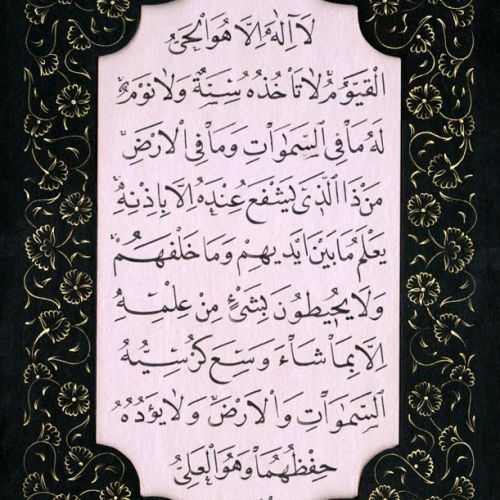 لَا اِلٰهَ اِلَّا هُوَ الْحَيُّ
الْقَيُّومُ لَا تَأْخُذُهُ سِنَةٌ وَلَا نَوْمٌ
لَهُ مَا فِي السَّمٰوَاتِ وَمَا فِي الْاَرْضِ
مَنْ ذَا الَّذِي يَشْفَعُ عِنْدَهُ اِلَّا بِاِذْنِهِ
يَعْلَمُ مَا بَيْنَ اَيْدِيهِمْ وَمَا خَلْفَهُمْ
وَلَا يُحِيطُونَ بِشَيْءٍ مِنْ عِلْمِهِ
اِلَّا بِمَا شَاءَ وَسِعَ كُرْسِيُّهُ
السَّمٰوَاتِ وَالْاَرْضَ وَلَا يَؤُدُهُ
حِفْظُهُمَا وَهُوَ الْعَلِيُّ